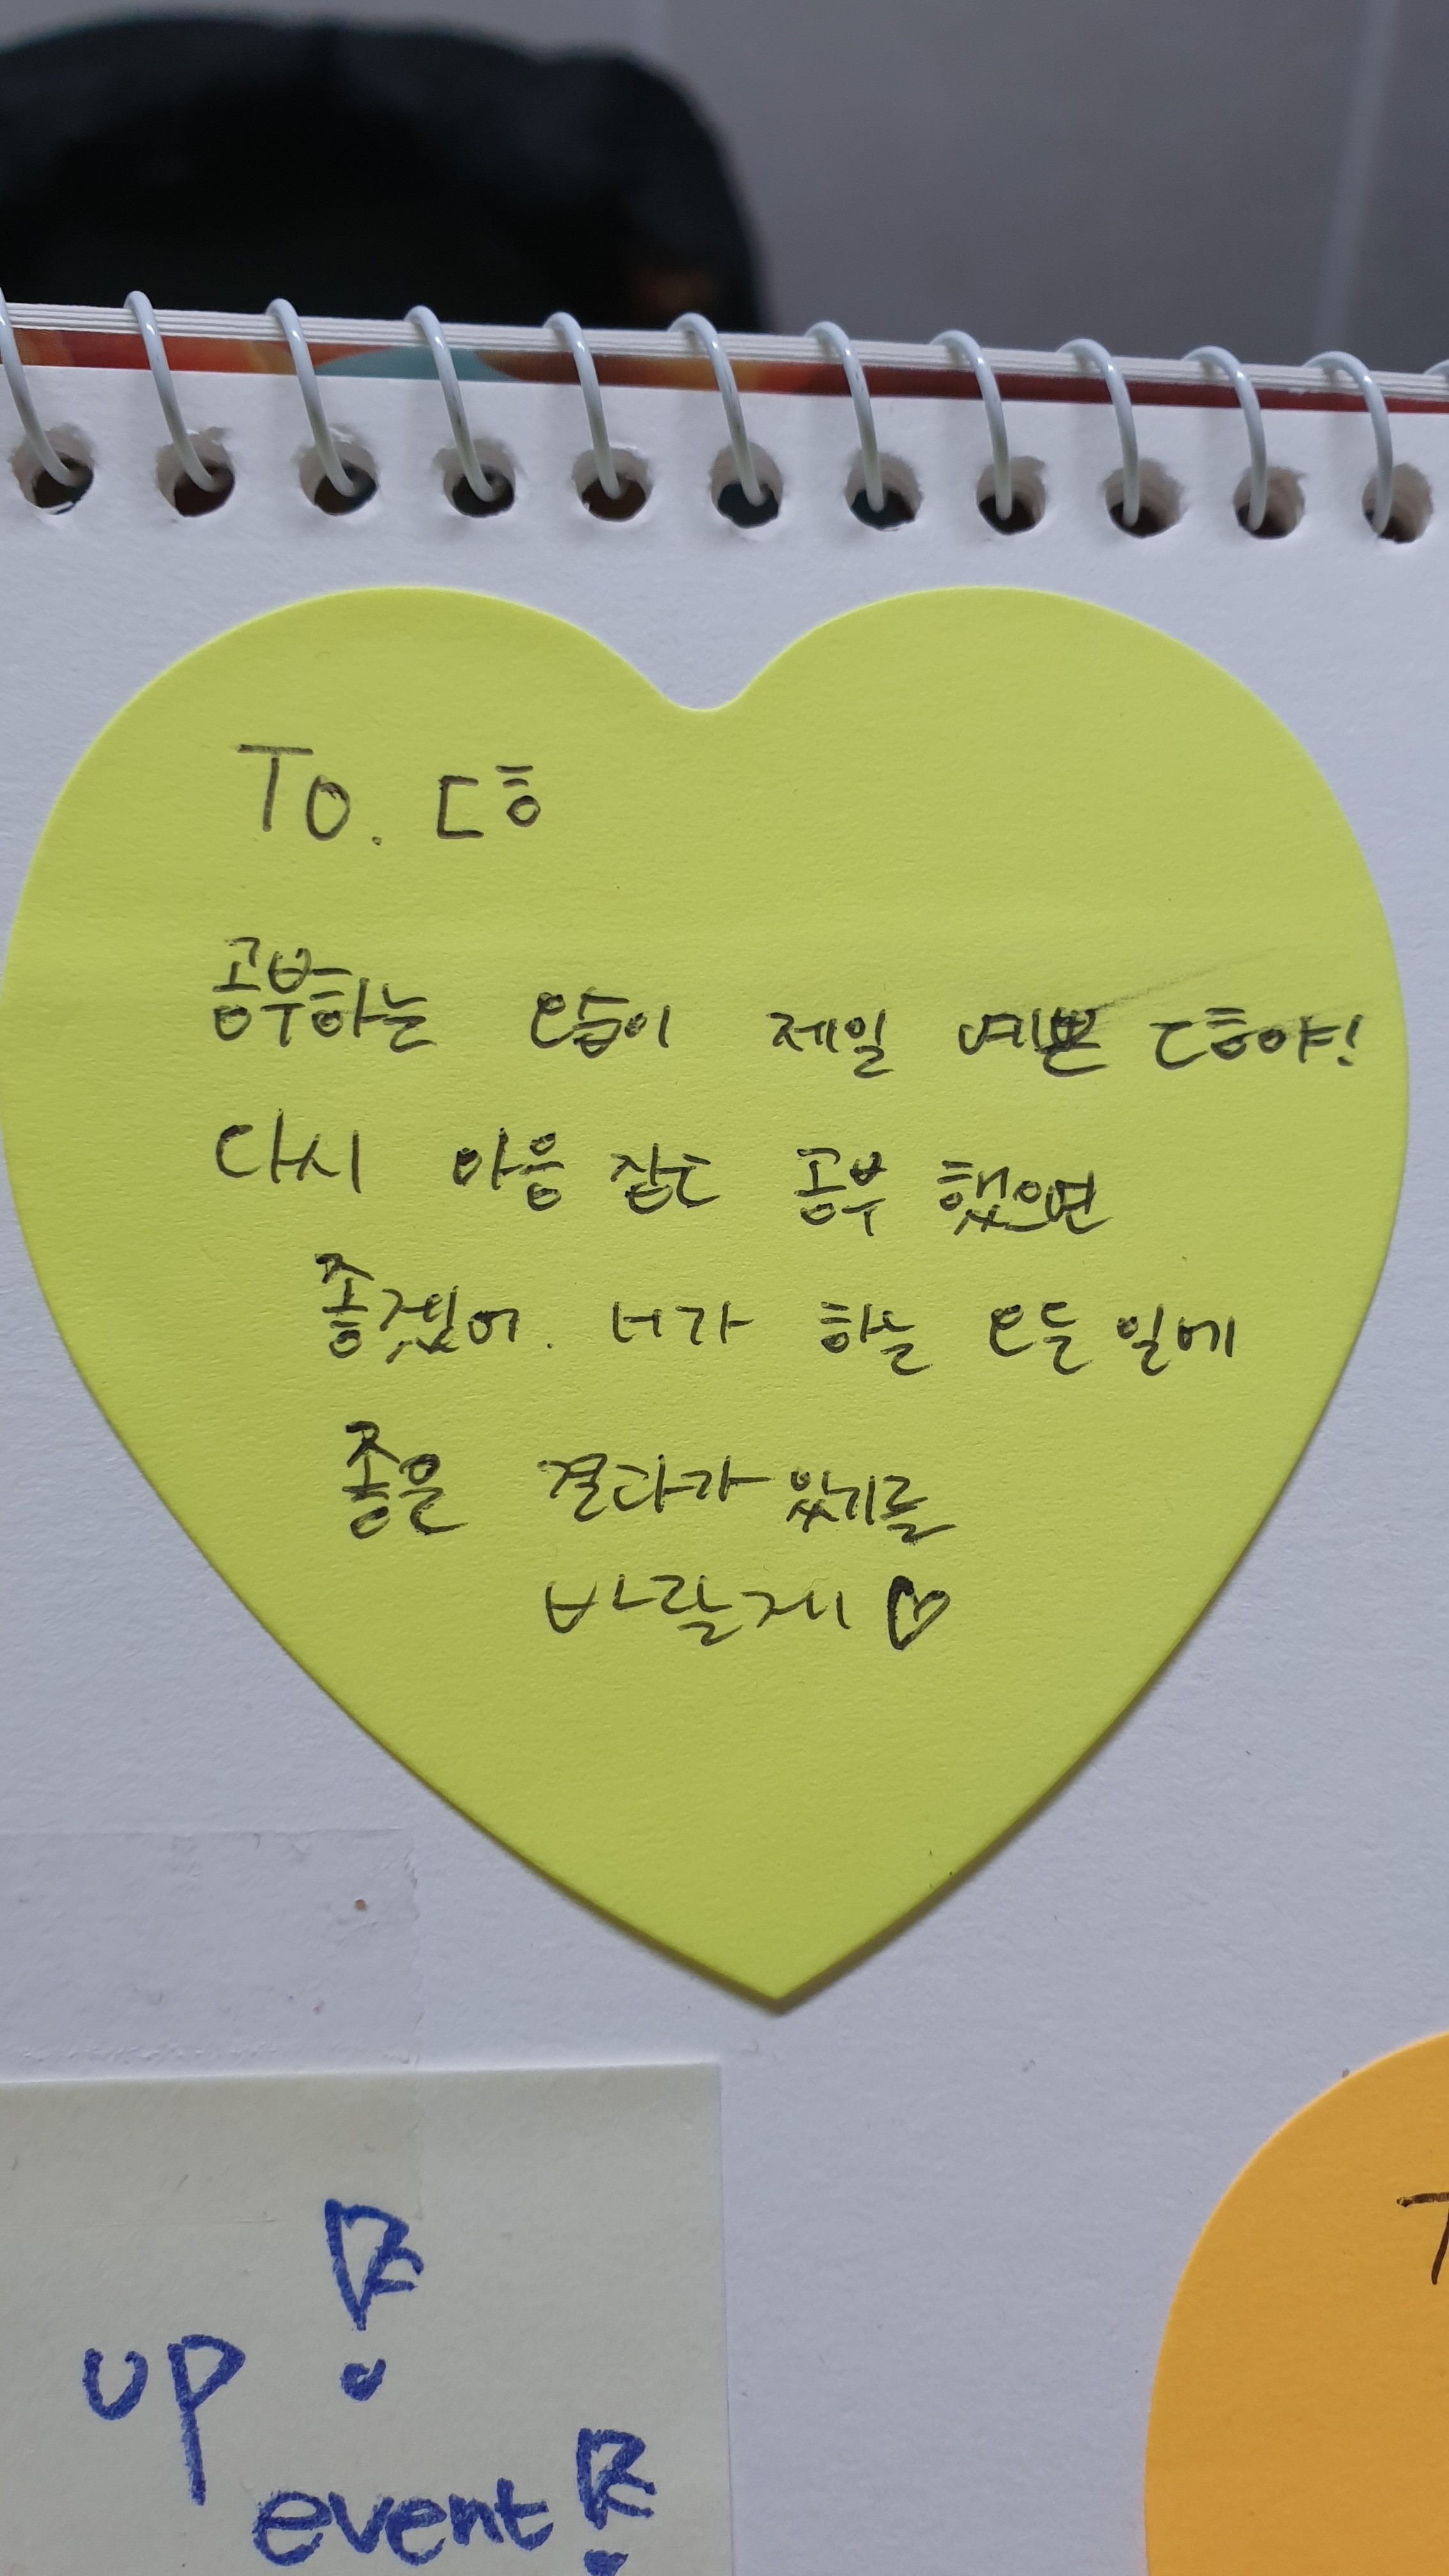 To. ㄷㅎ
공부하는 모습이 제일 예쁜 ㄷㅎ야!
다시 마음 잡고 공부 했으면
좋겠어. 너가 하는 모든 일에
좋은 결과가 있기를
바랄게♡
up
event